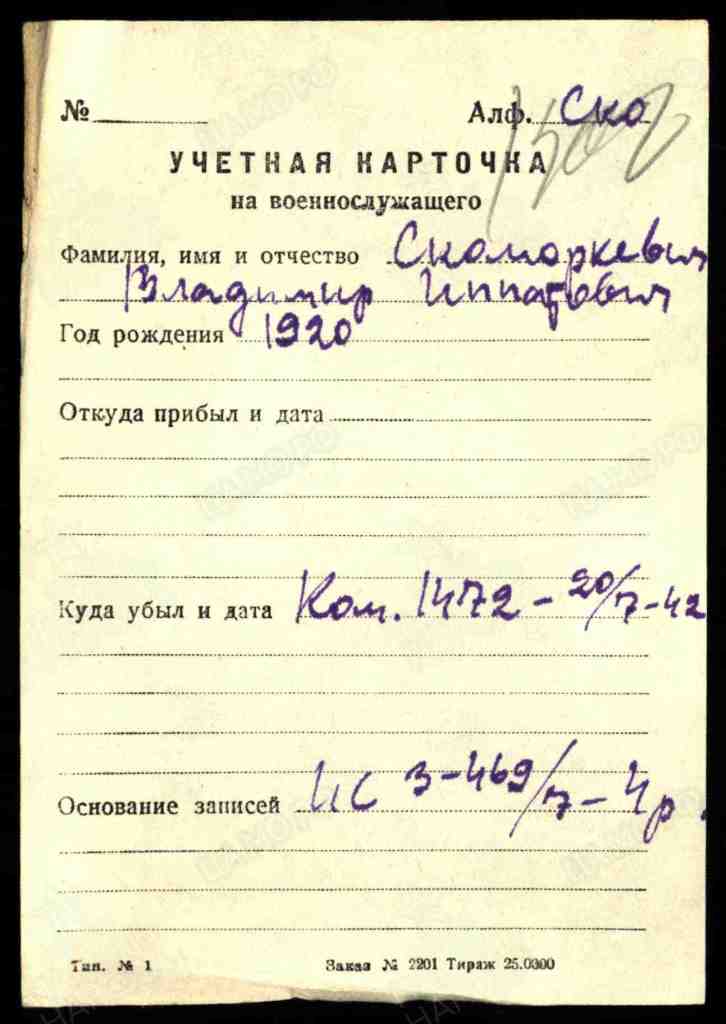 № Алф. Ско
УЧЕТНАЯ КАРТОЧКА
на военнослужащего
Фамилия, имя и отчество Скоморкевич
Владимир Иппатович
Год рождения 1920
Откуда прибыл и дата
Куда убыл и дата Ком. 1472 - 20/7-42
Основание записей ИС 3-469/7-4р.
Тип. № 1 Заказ № 2201 Тираж 25.0300